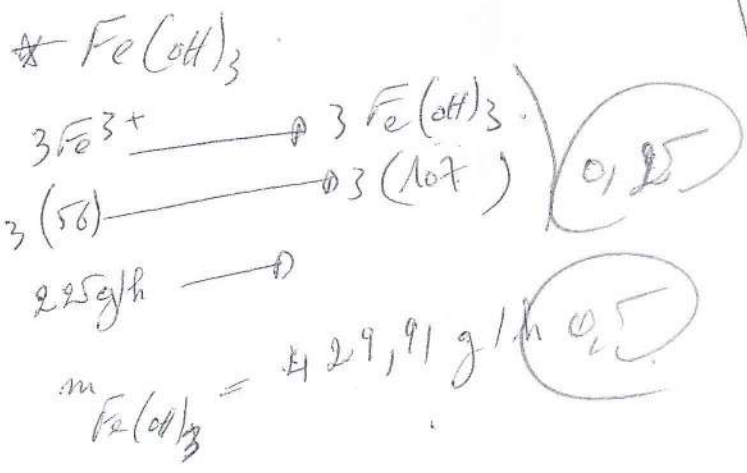 * Fe(OH)3
3Fe3+ → 3 Fe(OH)3 .
3 (56) → 3 (107) 0,25
225g/h →
m Fe(OH)3 = 429,91 g/h 0,5